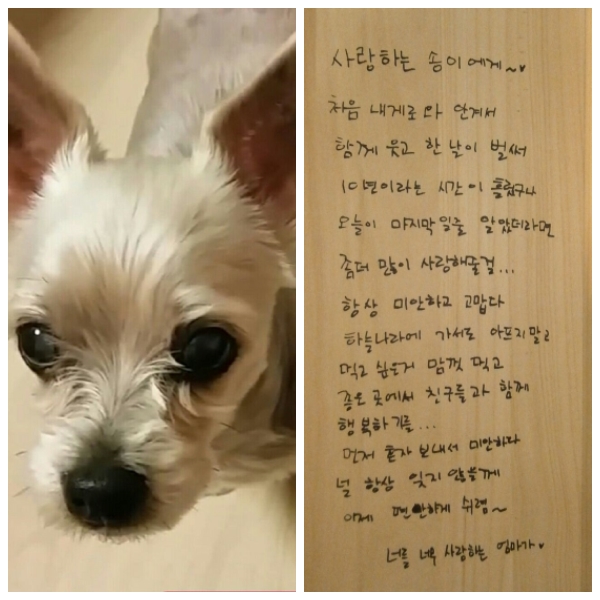 사랑하는 송이에게~♥
처음 내게로 와 안겨서
함께 웃고 한 날이 벌써
10년이라는 시간이 흘렀구나
오늘이 마지막일줄 알았더라면
좀더 많이 사랑해줄걸...
항상 미안하고 고맙다
하늘나라에 가서도 아프지말고
먹고 싶은거 맘껏 먹고
좋은 곳에서 친구들과 함께
행복하기를...
먼저 혼자 보내서 미안하다
널 항상 잊지 않을께
이제 편안하게 쉬렴~
너를 너무 사랑하는 엄마가♥